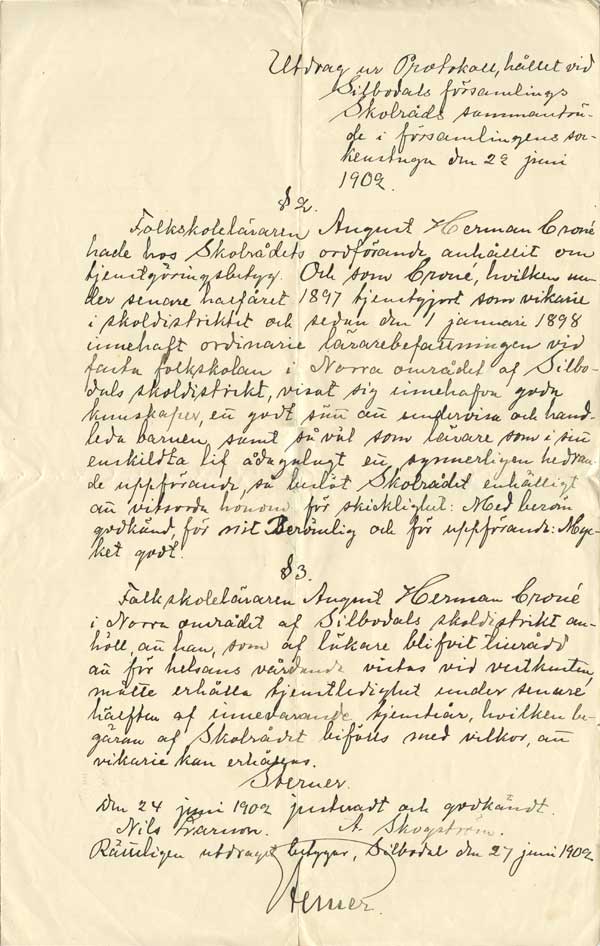 Utdrag ur Protokoll, hållet vid
Silbodals församlings
Skolråds sammanträ-
de i församlingens soc-
kenstuga den 22 juni
1902.
§ 2.
Folkskoleläraren August Herman Croné
hade hos Skolrådets ordförande anhållit om
tjenstgöringsbetyg. Och som Croné, hvilken un-
der senare halfåret 1897 tjenstgjort som vikarie
i skoldistriktet och sedan den 1 januari 1898
innehaft ordinarie lärarebefattningen vid
fasta folkskolan i Norra området af Silbo-
dals skoldistrikt, visat sig innehafva goda
kunskaper, ett godt sätt att undervisa och hand-
leda barnen, samt så väl som lärare som i sitt
enskildta lif ådagalagt ett synnerligen hedran-
de uppförande, så beslöt Skolrådet enhälligt
att vitsorda honom för skicklighet: Med beröm
godkänd, för nit Berömlig och för uppförande: Myc-
ket godt.
§ 3.
Folkskoleläraren August Herman Croné
i Norra området af Silbodals skoldistrikt an-
höll, att han, som af läkare blifvit tillrådd
att för helsans vårdande vistas vid vestkusten,
måtte erhålla tjenstledighet under senare
hälften af innevarande tjenstår, hvilken be-
gäran af Skolrådet bifölls med vilkor, att
vikarie kan erhållas.
Sterner.
Den 24 juni 1902 justeradt och godkändt.
Nils Larsson. A. Skogström.
Rätteligen utdraget betygar, Silbodal den 27 juni 1902
Sterner.